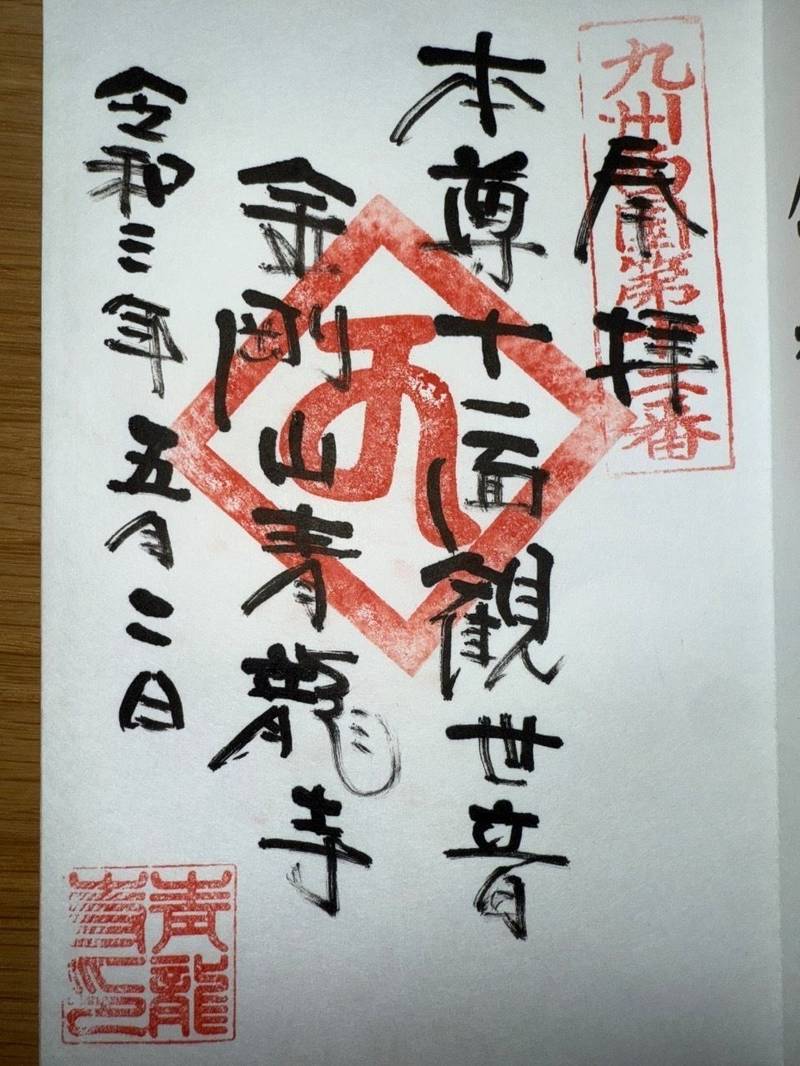 九州西国第十二番
奉拝
本尊十一面観世音
金剛山青龍寺
令和三年五月二日
青龍